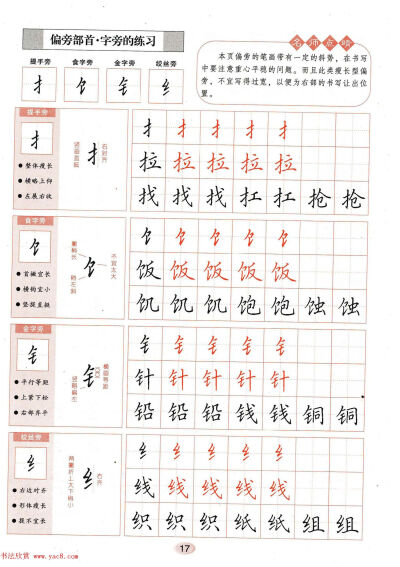 偏旁部首·字旁的练习
提手旁 食字旁 金字旁 绞丝旁
扌 饣 钅 纟
名师点睛
本页偏旁的笔画带有一定的斜势，在书写
中要注意重心平稳的问题。而且此类瘦长型偏
旁，不宜写得过宽，以便为右部的书写让出位
置。
提手旁
扌
整体瘦长
横略上仰
左展右收
竖画直挺
扌
右对齐
扌 扌 扌 扌 扌
拉 拉 拉 拉 拉
找 找 扛 扛 抢 抢
食字旁
饣
首撇宜长
横钩宜小
竖提直挺
饣
不宜太大
饣 饣 饣 饣 饣
饭 饭 饭 饭 饭
饥 饥 饱 饱 蚀 蚀
金字旁
钅
平行等距
上紧下松
右部齐平
竖略偏左
钅
横画等距
钅 钅 钅 钅 钅
针 针 针 针 针
铅 铅 钱 钱 铜 铜
绞丝旁
纟
右边对齐
形体瘦长
提不宜长
两重折上大下稍小
纟
右齐
纟 纟 纟 纟 纟
线 线 线 线 线
织 织 纸 纸 组 组
17
书法欣赏 www.yac8.com